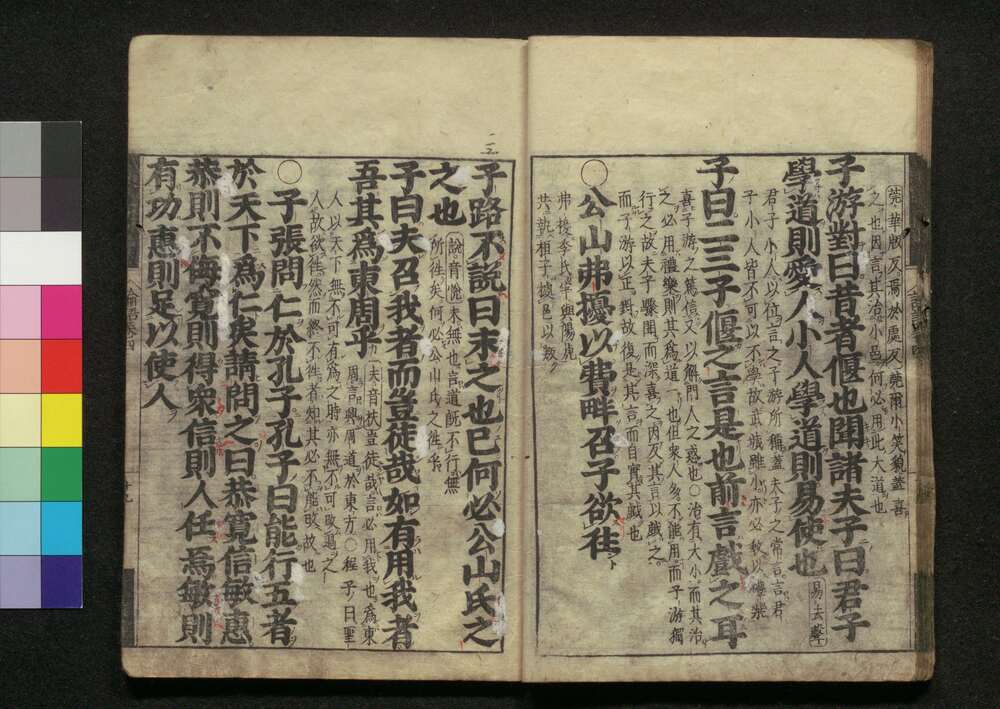 莞華版反焉於虔反莞爾小笑貌蓋喜
之也因言其治小邑何必用此大道也
子游對曰昔者偃也聞諸夫子曰君子
學道則愛人小人學道則易使也
易去聲
君子小人以位言之子游所稱蓋夫子之常言言君
子小人皆不可以不學故武城雖小亦必教以禮樂
子曰二三子偃之言是也前言戲之耳
喜子游之篤信又以解門人之惑也○治有大小而其治
之必用禮樂則其為道一也但眾人多不能用而子游獨
行之故夫子驟聞而深喜之因反其言以戲之
而子游以正對故復是其言而自實其戲也
○公山弗擾以費畔召子欲往
弗擾季氏宰與陽虎
共執桓子據邑以叛
子路不說曰末之也已何必公山氏之
之也
說音悅末無也言道既不行無
所往矣何必公山氏之往乎
子曰夫召我者而豈徒哉如有用我者
吾其為東周乎
夫音扶豈徒哉言必用我也為東
周言興周道於東方○程子曰聖
人以天下無不可有為之時亦無不可改過之
人故欲往然而終不往者知其必不能改故也
○子張問仁於孔子孔子曰能行五者
於天下為仁矣請問之曰恭寬信敏惠
恭則不侮寬則得眾信則人任焉敏則
有功惠則足以使人